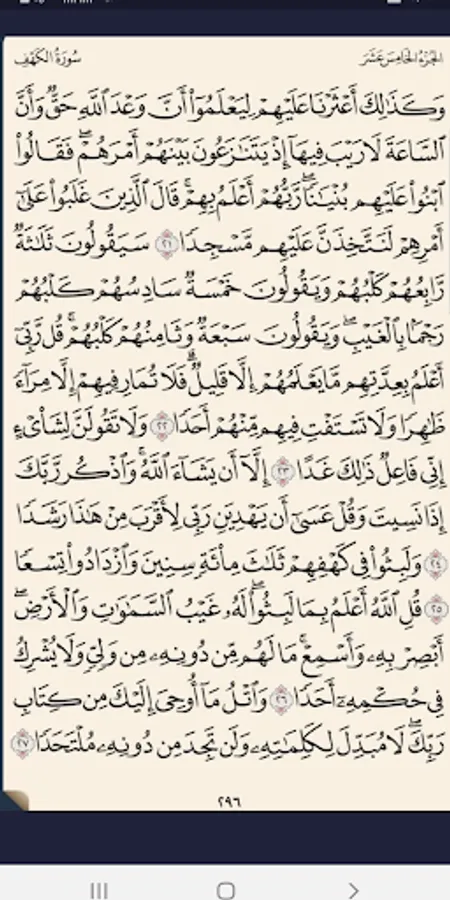 سُورَةُ الكَهْفِ الجُزْءُ الخَامِسَ عَشَرَ
وَكَذَٰلِكَ أَعْثَرْنَا عَلَيْهِمْ لِيَعْلَمُوٓا۟ أَنَّ وَعْدَ ٱللَّهِ حَقٌّ وَأَنَّ
ٱلسَّاعَةَ لَا رَيْبَ فِيهَآ إِذْ يَتَنَٰزَعُونَ بَيْنَهُمْ أَمْرَهُمْ ۖ فَقَالُوا۟
ٱبْنُوا۟ عَلَيْهِم بُنْيَٰنًا ۖ رَّبُّهُمْ أَعْلَمُ بِهِمْ ۚ قَالَ ٱلَّذِينَ غَلَبُوا۟ عَلَىٰٓ
أَمْرِهِمْ لَنَتَّخِذَنَّ عَلَيْهِم مَّسْجِدًا ٢١ سَيَقُولُونَ ثَلَٰثَةٌ
رَّابِعُهُمْ كَلْبُهُمْ وَيَقُولُونَ خَمْسَةٌ سَادِسُهُمْ كَلْبُهُمْ
رَجْمًۢا بِٱلْغَيْبِ ۖ وَيَقُولُونَ سَبْعَةٌ وَثَامِنُهُمْ كَلْبُهُمْ ۚ قُل رَّبِّىٓ
أَعْلَمُ بِعِدَّتِهِم مَّا يَعْلَمُهُمْ إِلَّا قَلِيلٌ ۗ فَلَا تُمَارِ فِيهِمْ إِلَّا مِرَآءً
ظَٰهِرًا وَلَا تَسْتَفْتِ فِيهِم مِّنْهُمْ أَحَدًا ٢٢ وَلَا تَقُولَنَّ لِشَا۟ىْءٍ
إِنِّى فَاعِلٌ ذَٰلِكَ غَدًا ٢٣ إِلَّآ أَن يَشَآءَ ٱللَّهُ ۚ وَٱذْكُر رَّبَّكَ
إِذَا نَسِيتَ وَقُلْ عَسَىٰٓ أَن يَهْدِيَنِ رَبِّى لِأَقْرَبَ مِنْ هَٰذَا رَشَدًا
٢٤ وَلَبِثُوا۟ فِى كَهْفِهِمْ ثَلَٰثَ مِا۟ئَةٍ سِنِينَ وَٱزْدَادُوا۟ تِسْعًا
٢٥ قُلِ ٱللَّهُ أَعْلَمُ بِمَا لَبِثُوا۟ ۖ لَهُۥ غَيْبُ ٱلسَّمَٰوَٰتِ وَٱلْأَرْضِ ۖ
أَبْصِرْ بِهِۦ وَأَسْمِعْ ۚ مَا لَهُم مِّن دُونِهِۦ مِن وَلِىٍّ وَلَا يُشْرِكُ
فِى حُكْمِهِۦٓ أَحَدًا ٢٦ وَٱتْلُ مَآ أُوحِىَ إِلَيْكَ مِن كِتَابِ
رَبِّكَ ۖ لَا مُبَدِّلَ لِكَلِمَٰتِهِۦ وَلَن تَجِدَ مِن دُونِهِۦ مُلْتَحَدًا ٢٧
٢٩٦